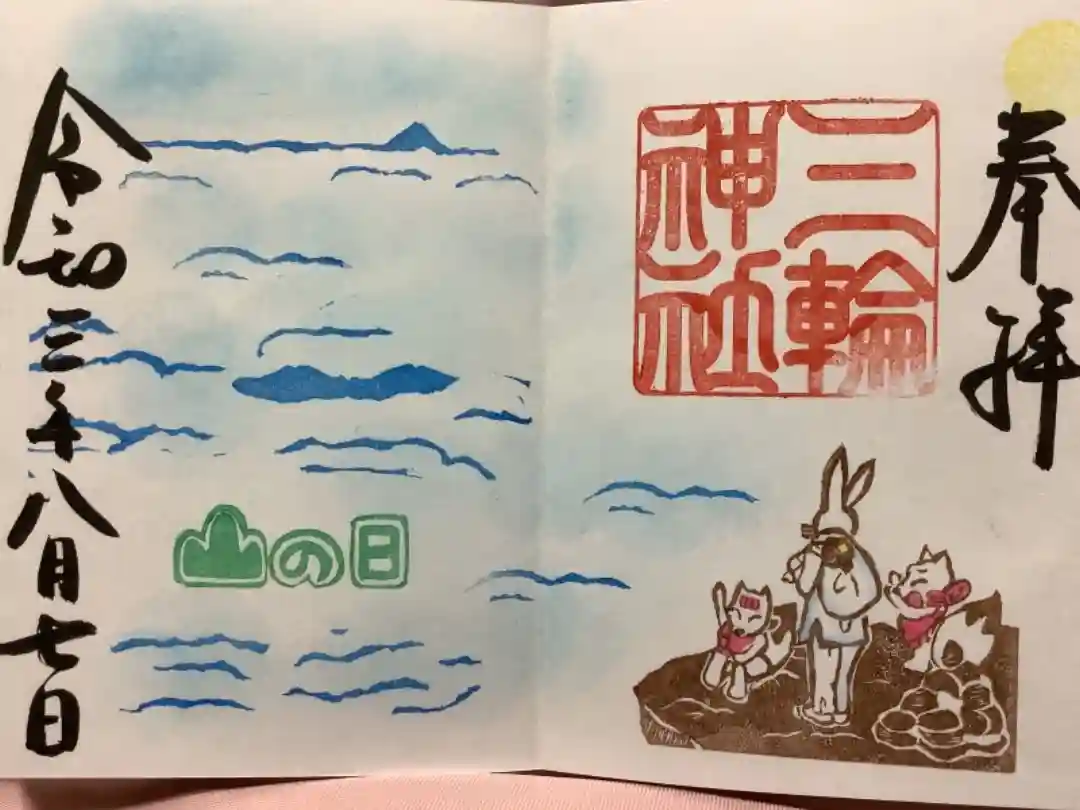 奉拝
三輪神社
山の日
令和三年八月七日